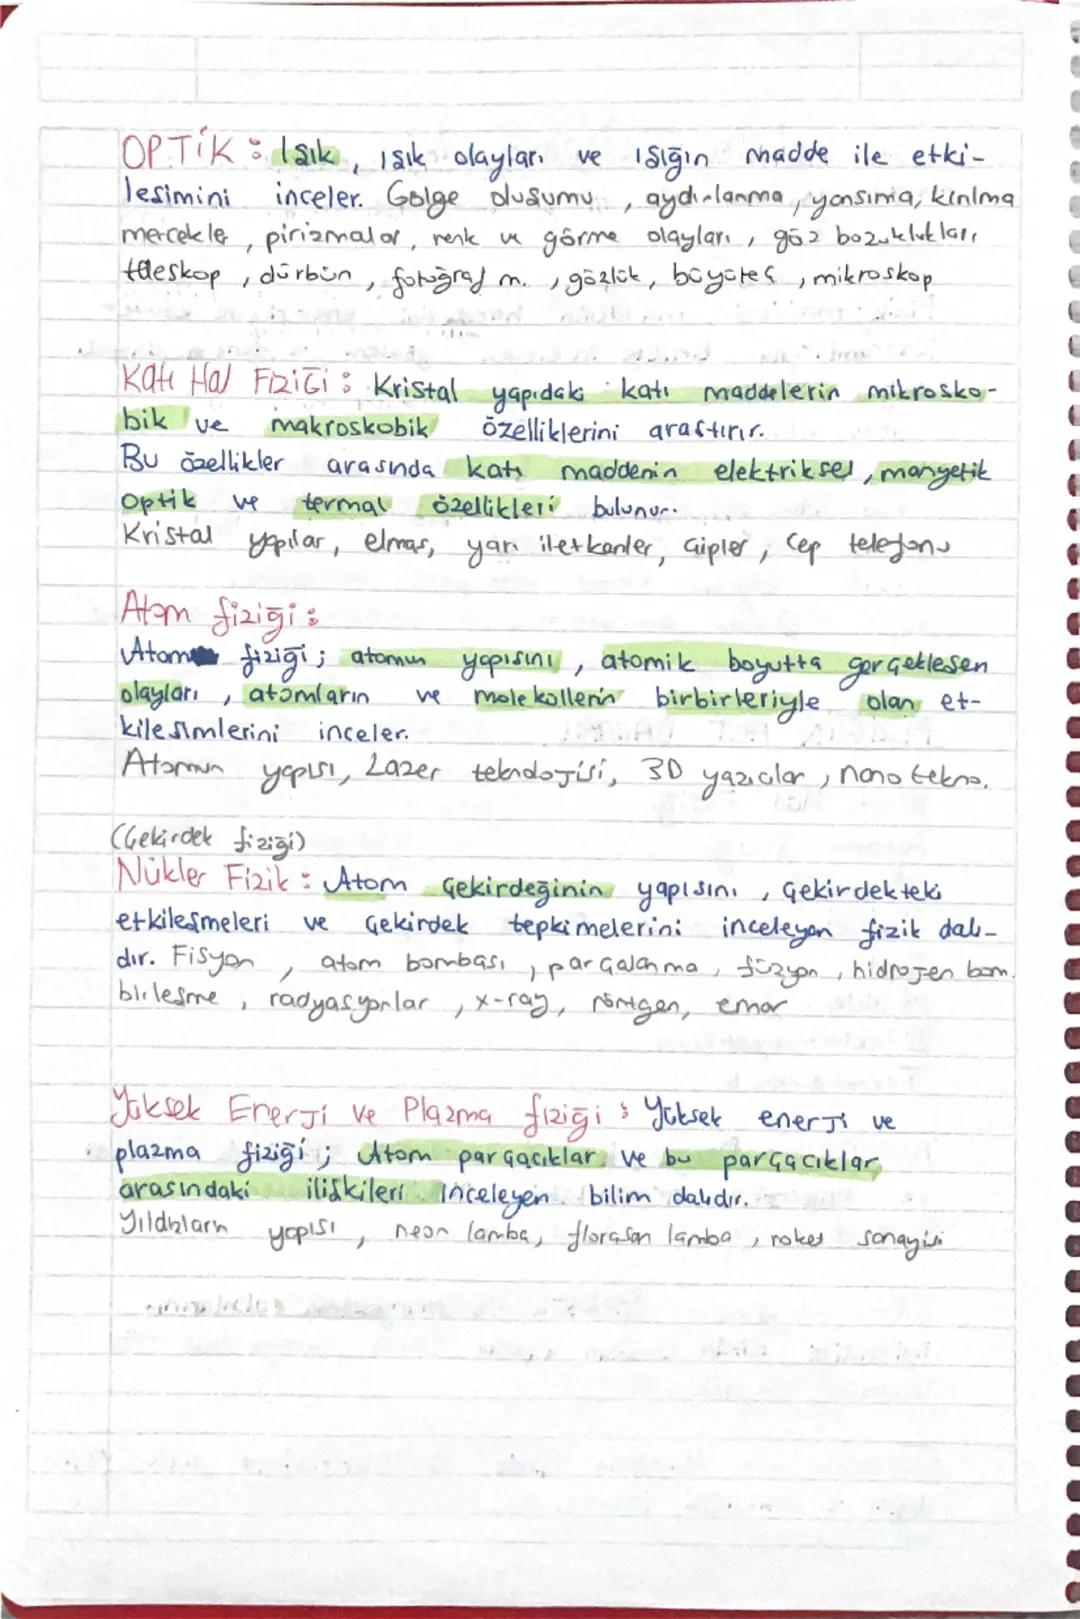 OPTİK : Işık, ışık olayları ve ışığın madde ile etki-
leşimini inceler. Gölge oluşumu, aydınlanma, yansıma, kırılma
mercekler, pirizmalar, renk ve görme olayları, göz bozuklukları,
teleskop, dürbün, fotoğraf m., gözlük, büyüteç, mikroskop
Katı Hal Fiziği : Kristal yapıdaki katı maddelerin mikrosko-
bik ve makroskobik özelliklerini araştırır.
Bu özellikler arasında katı maddenin elektriksel, manyetik
optik ve termal özellikleri bulunur.
Kristal yapılar, elmas, yarı iletkenler, çipler, cep telefonu
Atom fiziği :
Atom fiziği; atomun yapısını, atomik boyutta gerçekleşen
olayları, atomların ve moleküllerin birbirleriyle olan et-
kileşimlerini inceler.
Atomun yapısı, Lazer teknolojisi, 3D yazıcılar, nano tekno.
(Çekirdek fiziği)
Nükler Fizik : Atom çekirdeğinin yapısını, çekirdekteki
etkileşmeleri ve çekirdek tepkimelerini inceleyen fizik dalı-
dır. Fisyon, atom bombası, parçalanma, füzyon, hidrojen bom.
birleşme, radyasyonlar, x-ray, röntgen, emar
Yüksek Enerji ve Plazma fiziği : Yüksek enerji ve
plazma fiziği; Atom parçacıklar ve bu parçacıklar
arasındaki ilişkileri inceleyen bilim dalıdır.
Yıldızların yapısı, neon lamba, florasan lamba, roket sanayisi